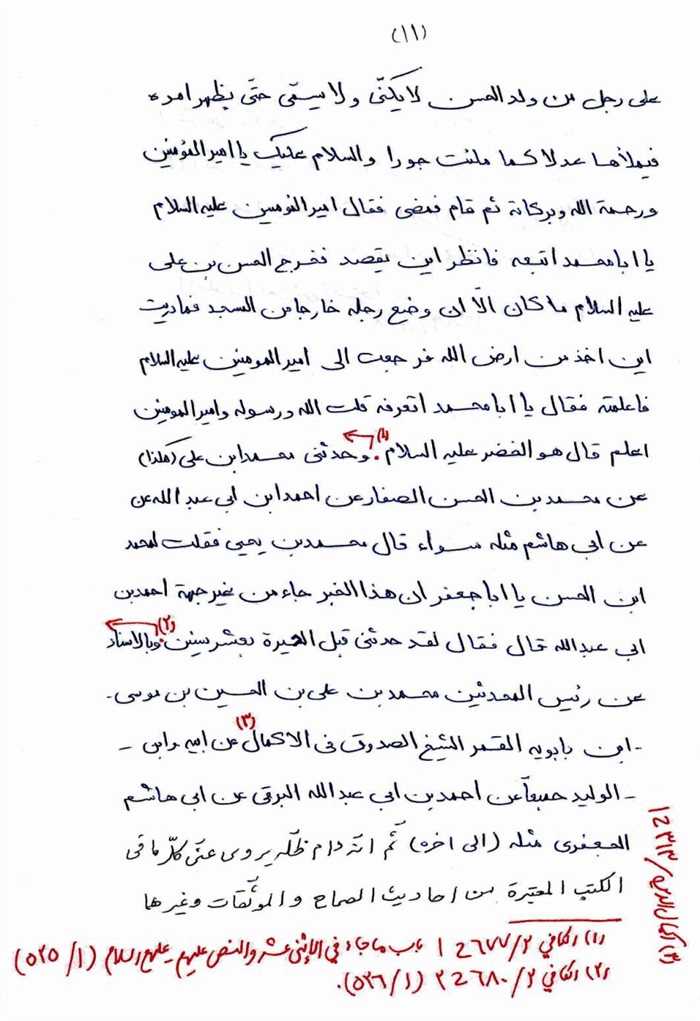 (١١)
على رجل من ولد الحسن لا يكنّى ولا يسمّى حتّى يظهر امره
فيملأها عدلا كما ملئت جورا والسلام عليك يا امير المؤمنين
ورحمة الله وبركاته ثم قام فمضى فقال امير المومنين عليه السلام
يا ابا محمد اتبعه فانظر اين يقصد فخرج الحسن بن على
عليه السلام ما كان الّا ان وضع رجله خارجا من المسجد فما دريت
اين اخذ من ارض الله فرجعت الى امير المومنين عليه السلام
فاعلمته فقال يا ابا محمد اتعرفه قلت الله ورسوله وامير المومنين
اعلم قال هو الخضر عليه السلام. (١) وحدثنى محمد ابن على (هكذا)
عن محمد بن الحسن الصفار عن احمد ابن ابى عبد الله عن
عن ابى هاشم مثله سواء قال محمد بن يحيى فقلت لمحمد
ابن الحسن يا ابا جعفر ان هذا الخبر جاء من غير جهة احمد بن
ابى عبد الله قال فقال لقد حدثنى قبل الحيرة بعشر سنين. (٢) وبالاسناد
عن رئيس المحدثين محمد بن على بن الحسين بن موسى -
- ابن بابويه القمى الشيخ الصدوق فى الاكمال (٣) عن ابيه وابن -
- الوليد جميعاً عن احمد بن ابى عبد الله البرقى عن ابى هاشم
الجعفرى مثله (الى اخره) ثم انه دام ظلّه يروى عنّى كلّ ما فى
الكتب المعتبرة من احاديث الصحاح والموثّقات وغيرها
(١) الكافي ٢/٦٧٧ ح ١ باب ما جاء في الإثنى عشر والنص عليهم عليهم السلام (١/٥٢٥)
(٢) الكافي ٢/٦٨٠ ح ٢ (١/٥٢٦).
(٣) كمال الدين/٣١٣ ح ١